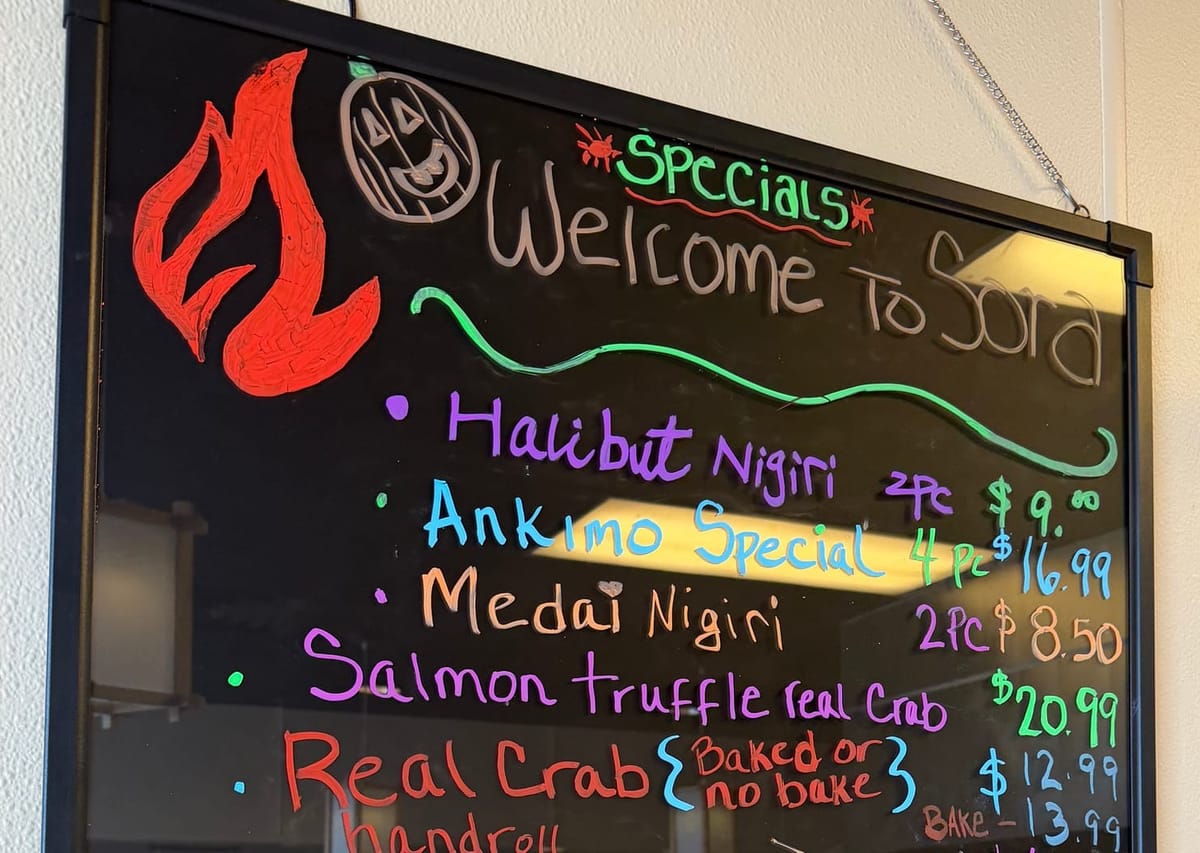 Specials
Welcome To Sora
• Halibut Nigiri 2Pc $9.00
• Ankimo Special 4 Pc $16.99
• Medai Nigiri 2Pc $8.50
• Salmon truffle real Crab $20.99
• Real Crab {Baked or no bake} $12.99
handroll BAKE - 13.99